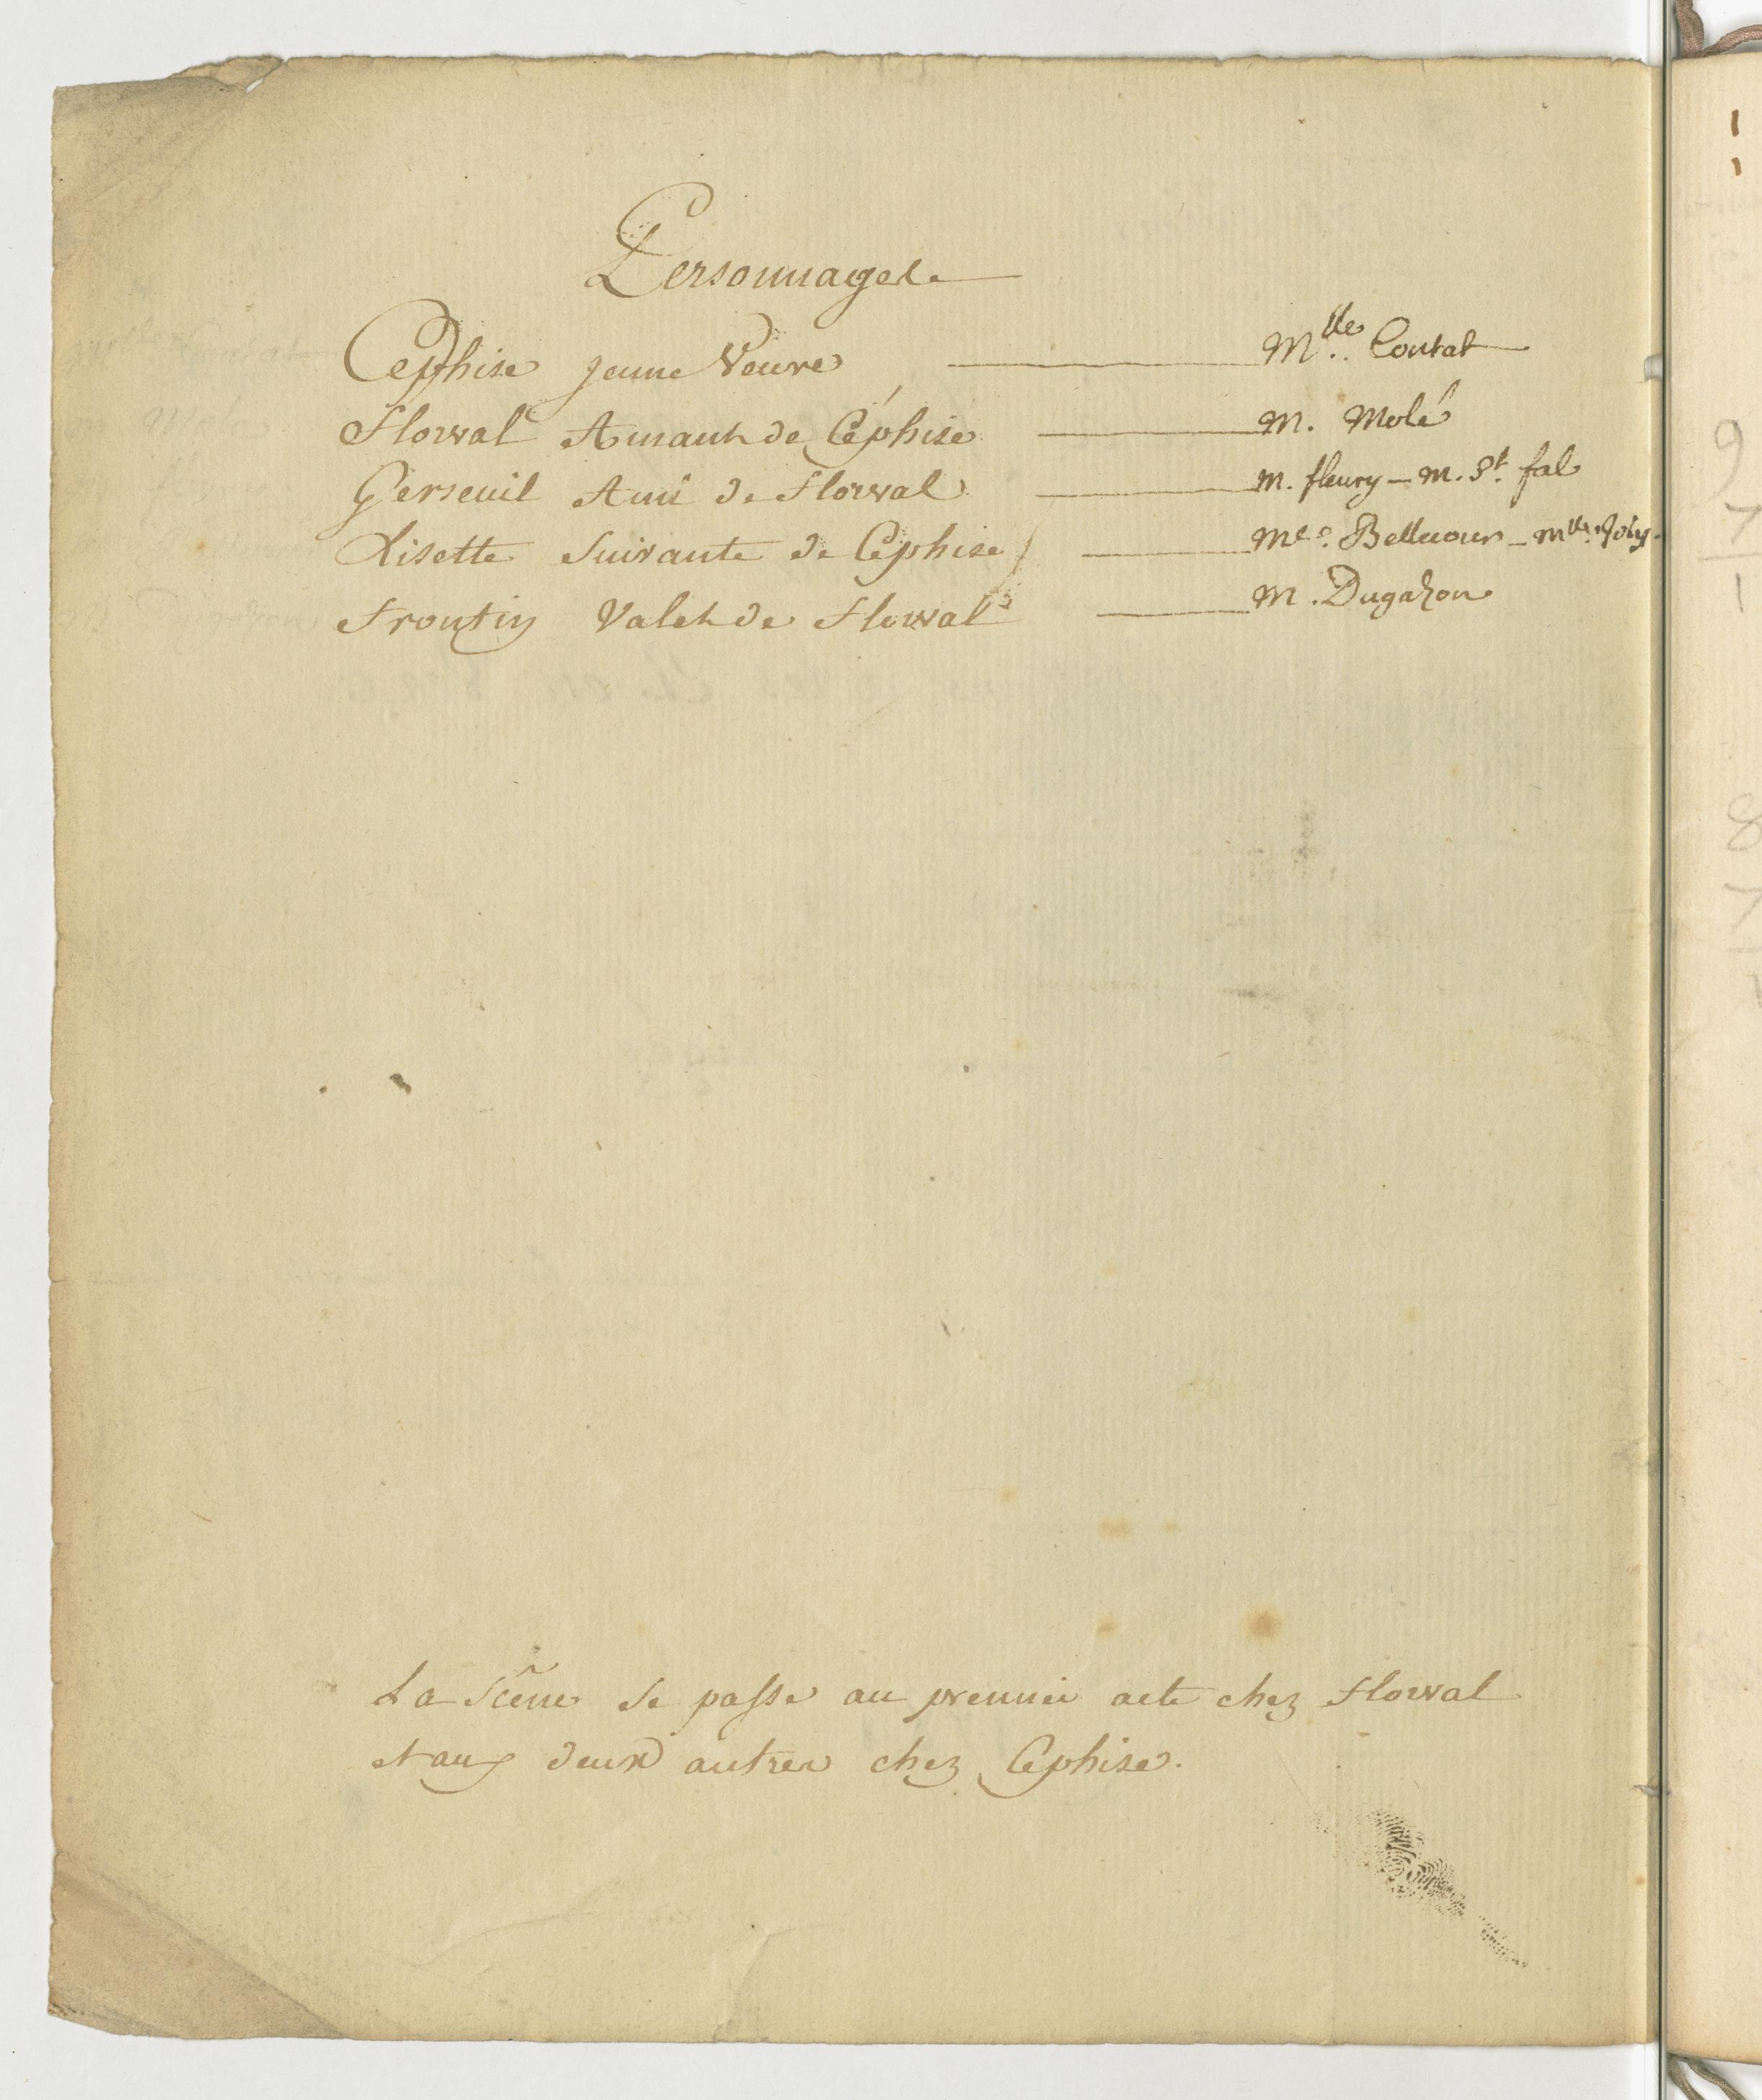 Personnages
Céphise jeune Veuve M.lle Contat
Florval Amant de Céphise M. Molé
Gerseuil Ami de Florval M. fleury — M. St. fal
Lisette Suivante de Céphise M.e Bellecour — Mlle. Joly
Frontin Valet de Florval M. Dugazon
La Scêne se passe au premier acte chez Florval
et aux deux autres chez Céphise.
9
7
1
8
7